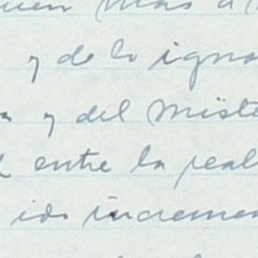 y de lo igno
y del miste
entre la real
ido incremen